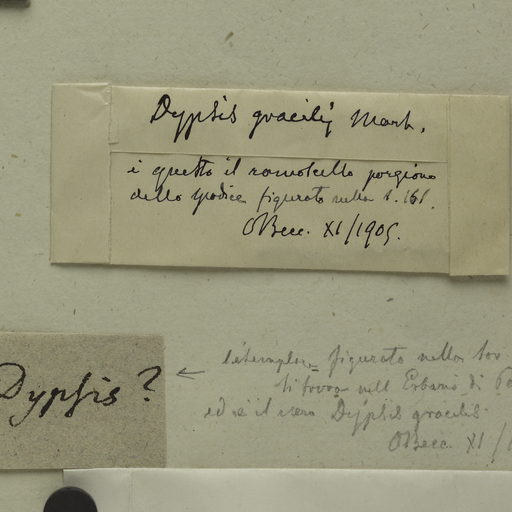 Dypsis gracilis Mart.
è questo il ramoscello porzione
dello spadice figurato nella t. 161.
OBecc. XI/1905.
Dypsis?
figurato nella
si trova nell' Erbario di
ed è il vero Dypsis gracilis
OBecc. XI/